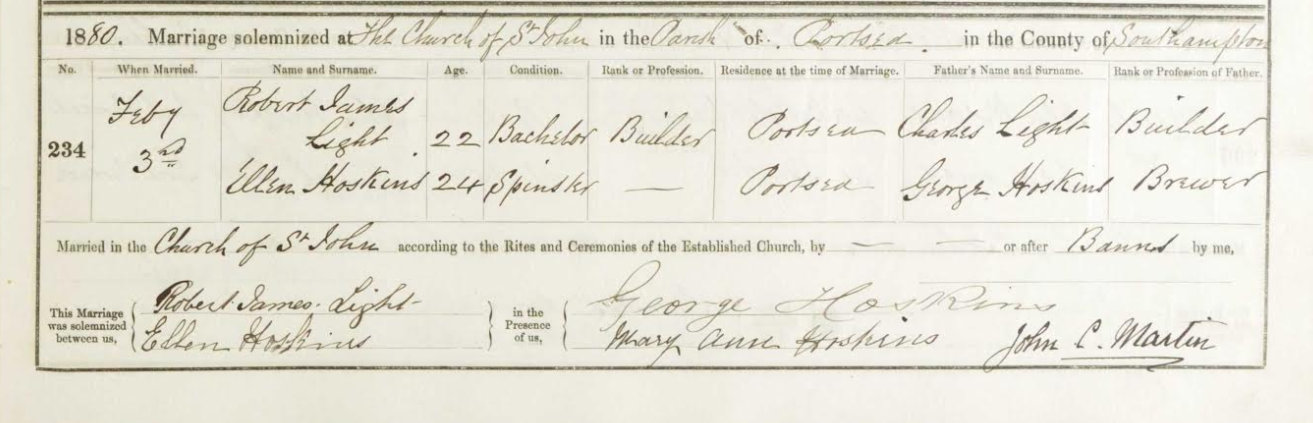 1880. Marriage solemnized at The Church of St John in the Parish of Portsea in the County of Southampton
No. When Married. Name and Surname. Age. Condition. Rank or Profession. Residence at the time of Marriage. Father's Name and Surname. Rank or Profession of Father.
234 Feby 3rd Robert James Light 22 Bachelor Builder Portsea Charles Light Builder
Ellen Hoskins 24 Spinster — Portsea George Hoskins Brewer
Married in the Church of St John according to the Rites and Ceremonies of the Established Church, by — — or after Banns by me,
This Marriage was solemnized between us, Robert James Light in the Presence of us, George Hoskins
Ellen Hoskins Mary Ann Hoskins John C. Martin